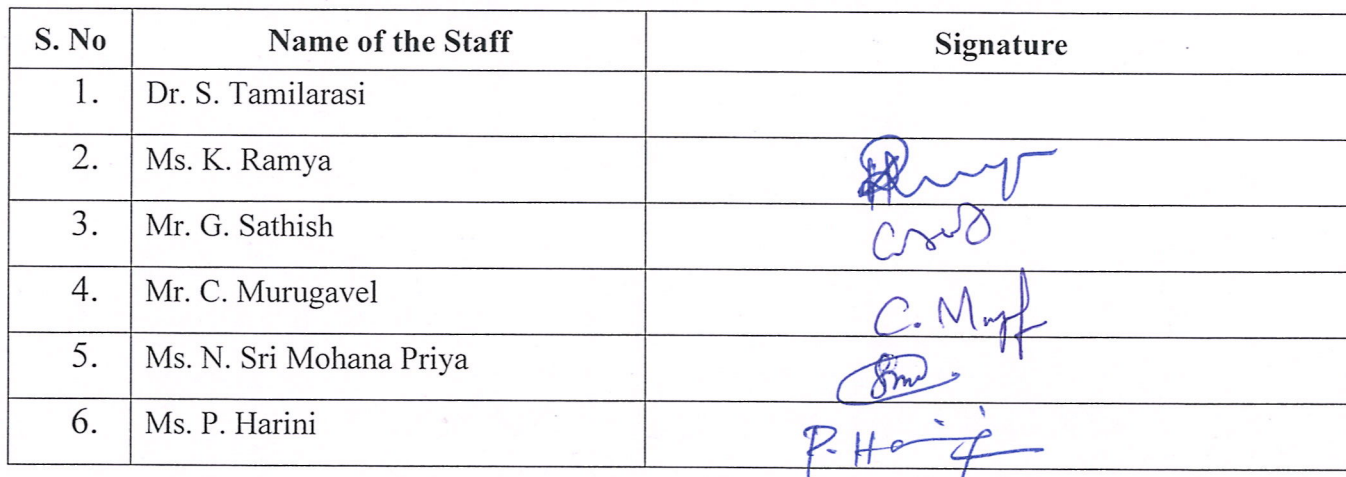 S. No Name of the Staff Signature
1. Dr. S. Tamilarasi
2. Ms. K. Ramya
3. Mr. G. Sathish
4. Mr. C. Murugavel C.
5. Ms. N. Sri Mohana Priya
6. Ms. P. Harini P. Harini